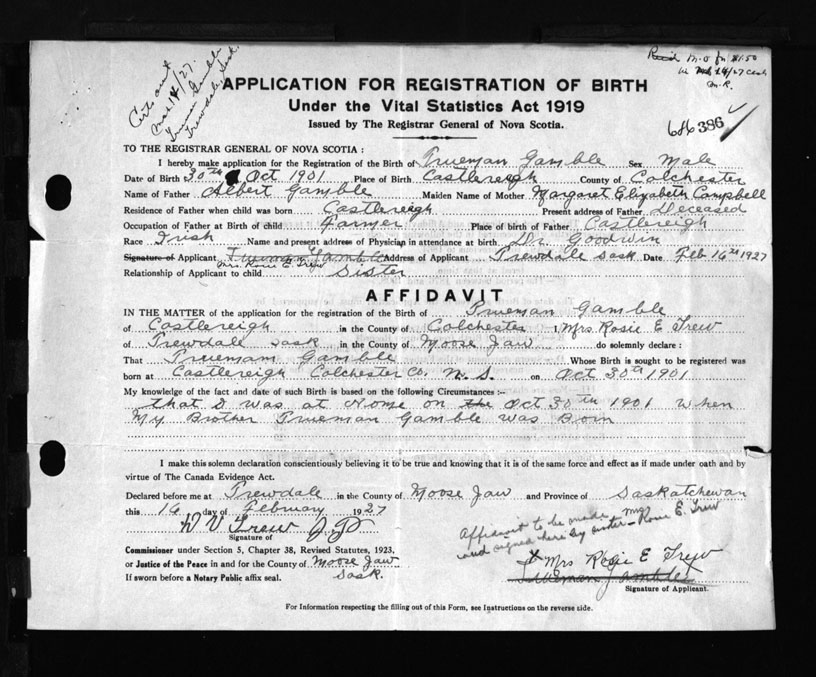 Cert. out
Mar 14/27.
Trueman Gamble
Trewdale, Sask.
Rec'd M.O for $1.50
Mch 14/27
M.R.
686386
APPLICATION FOR REGISTRATION OF BIRTH
Under the Vital Statistics Act 1919
Issued by The Registrar General of Nova Scotia.
TO THE REGISTRAR GENERAL OF NOVA SCOTIA :
I hereby make application for the Registration of the Birth of Trueman Gamble Sex Male
Date of Birth 30th Oct 1901 Place of Birth Castlereigh County of Colchester
Name of Father Albert Gamble Maiden Name of Mother Margaret Elizabeth Campbell
Residence of Father when child was born Castlereigh Present address of Father Deceased
Occupation of Father at Birth of child Farmer Place of birth of Father Castlereigh
Race Irish Name and present address of Physician in attendance at birth Dr Goodwin
Signature of Applicant Trueman Gamble Address of Applicant Trewdale Sask Date Feb 16th 1927
Mrs. Rosie E. Trew
Relationship of Applicant to child Sister
AFFIDAVIT
IN THE MATTER of the application for the registration of the Birth of Trueman Gamble
of Castlereigh in the County of Colchester I, Mrs Rosie E Trew
of Trewdale Sask in the County of Moose Jaw do solemnly declare :
That Truemam Gamble Whose Birth is sought to be registered was
born at Castlereigh Colchester Co. N.S. on Oct 30th 1901
My knowledge of the fact and date of such Birth is based on the following Circumstances :–
that I was at Home on the Oct 30th 1901 When
My Brother Trueman Gamble was Born
I make this solemn declaration conscientiously believing it to be true and knowing that it is of the same force and effect as if made under oath and by
virtue of The Canada Evidence Act.
Declared before me at Trewdale in the County of Moose Jaw and Province of Saskatchewan
this 16 day of February 1927
W V Trew J.P
Signature of
Affidavit to be made
and signed here by sister Mrs Rosie E. Trew
Commissioner under Section 5, Chapter 38, Revised Statutes, 1923,
or Justice of the Peace in and for the County of Moose Jaw
Sask.
If sworn before a Notary Public affix seal.
X Mrs Rosie E Trew
Trueman Gamble
Signature of Applicant.
For Information respecting the filling out of this Form, see Instructions on the reverse side.